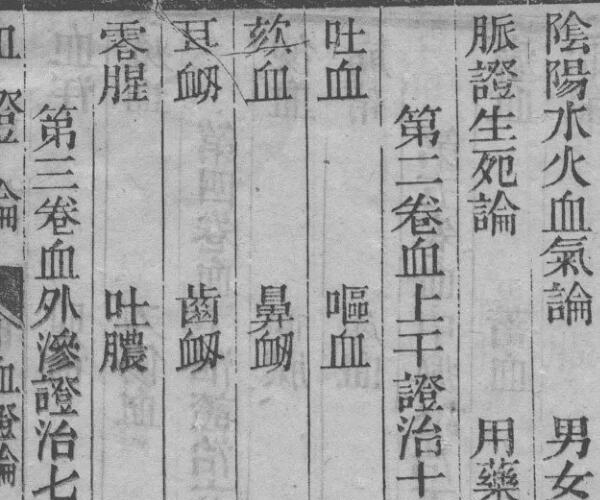 陰陽水火血氣論 男女
脈證生死論 用藥
第二卷血上干證治十
吐血 嘔血
欬血 鼻衄
耳衄 齒衄
零腥 吐膿
第三卷血外滲證治七
血證論 血證論